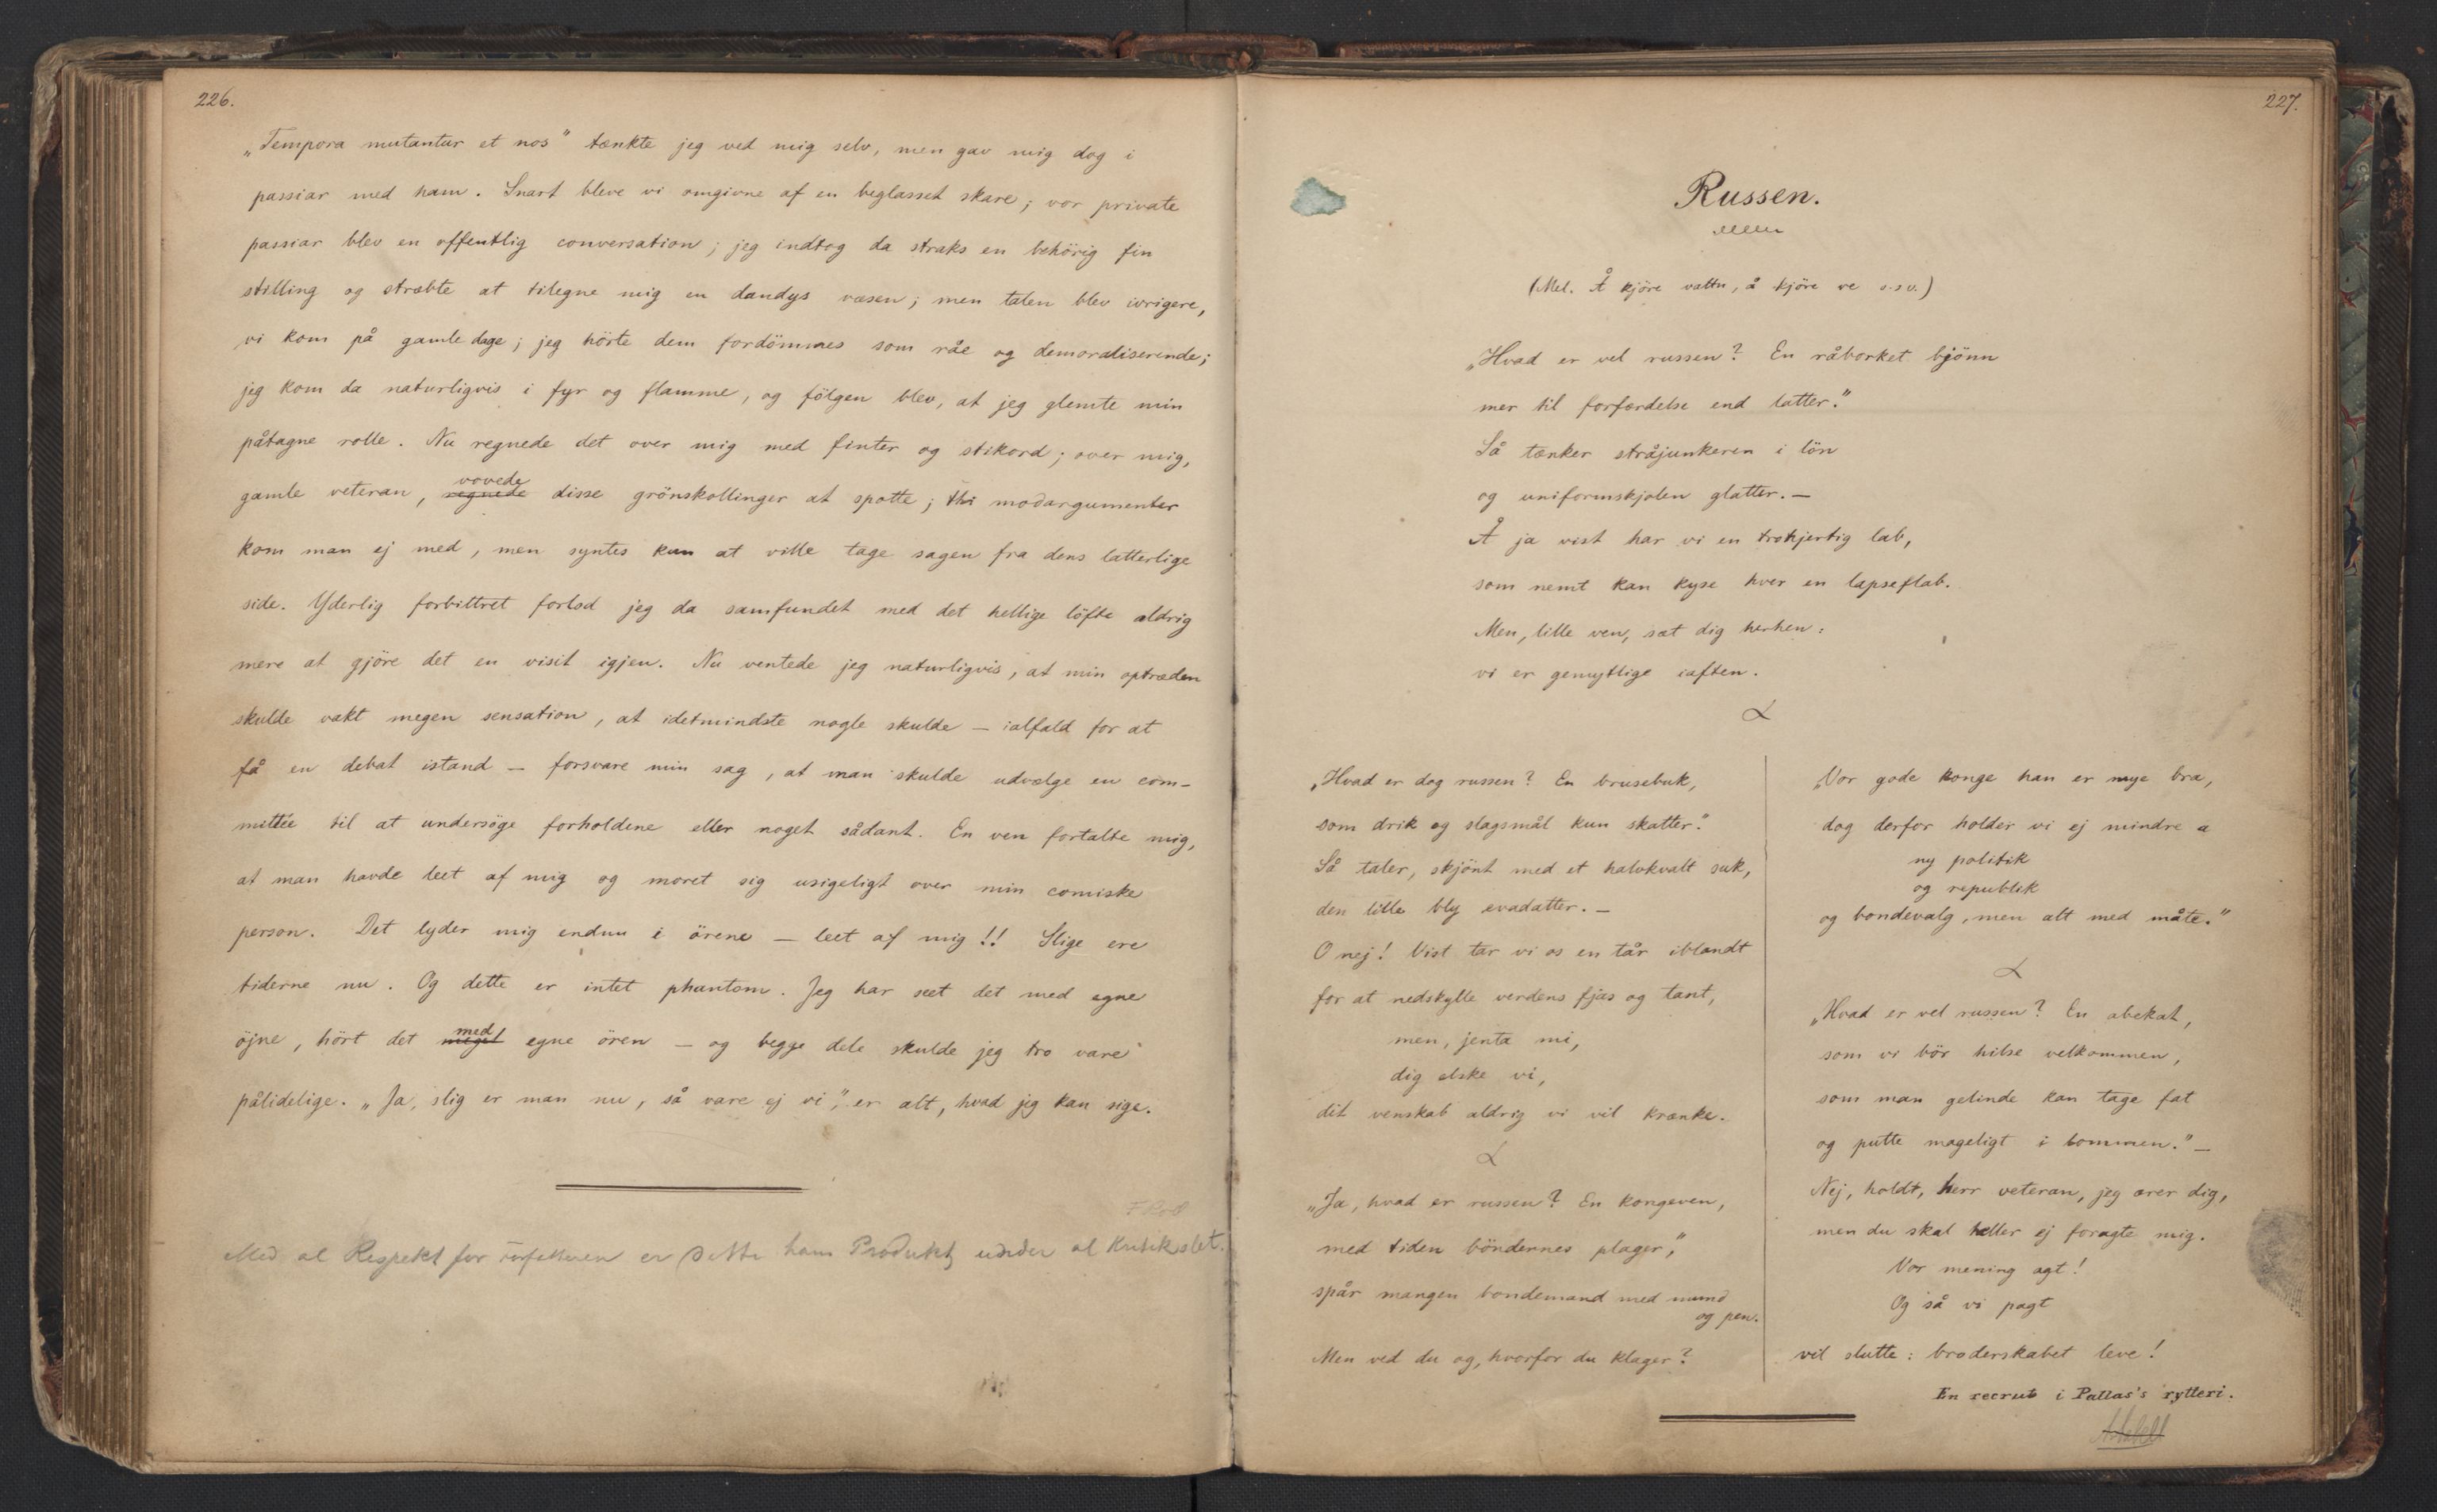 226.
„Tempora mutantur et nos" tænkte jeg ved mig selv, men gav mig dog i
passiar med ham. Snart bleve vi omgivne af en beglasset skare; vor private
passiar blev en offentlig conversation; jeg indtog da straks en behörig fin
stilling og stræbte at tilegne mig en dandys væsen; men talen blev ivrigere,
vi kom på gamle dage; jeg hörte dem fordömmes som råe og demoraliserende;
jeg kom da naturligvis i fyr og flamme, og fölgen blev, at jeg glemte min
påtagne rolle. Nu regnede det over mig med finter og stikord; over mig,
gamle veteran, regnede vovede disse grönskollinger at spotte; thi modargumenter
kom man ej med, men syntes kun at ville tage sagen fra dens latterlige
side. Yderlig forbittret forlod jeg da samfundet med det hellige löfte aldrig
mere at gjöre det en visit igjen. Nu ventede jeg naturligvis, at min optræden
skulde vakt megen sensation, at idetmindste nogle skulde — ialfald for at
få en debat istand — forsvare min sag, at man skulde udvælge en com-
mittée til at undersöge forholdene eller noget sådant. En ven fortalte mig,
at man havde leet af mig og moret sig usigeligt over min comiske
person. Det lyder mig endnu i örene — leet af mig!! Slige ere
tiderne nu. Og dette er intet phantom. Jeg har seet det med egne
öjne, hört det meget med egne ören — og begge dele skulde jeg tro vare
pålidelige. „Ja, slig er man nu, så vare ej vi", er alt, hvad jeg kan sige.
Med al Respekt for Forfatteren er dette hans Produkt under al Kritik slet.
227.
Russen.
(Mel. Å kjöre vattn, å kjöre ve o.s.v.)
„Hvad er vel russen? En råbarket bjönn
mer til forfærdelse end latter."
Så tænker stråjunkeren i lön
og uniformskjolen glatter. —
Å ja vist har vi en trohjertig lab,
som nemt kan kyse hver en lapseflab.
Men, lille ven, sæt dig herhen:
vi er gemytlige iaften.
„Hvad er dog russen? En brusebuk,
som drik og slagsmål kun skatter."
Så taler, skjönt med et halvkvalt suk,
den lille bly evadatter. —
O nej! Vist tar vi os en tår iblandt
for at nedskylle verdens fjas og tant,
men, jenta mi,
dig elske vi,
dit venskab aldrig vi vil krænke.
„Ja, hvad er russen? En kongeven,
med tiden böndernes plager,"
spår mangen bondemand med mund
og pen.
Men ved du og, hvorfor du klager?
„Vor gode konge han er mye bra,
dog derfor holder vi ej mindre a
ny politik
og republik
og bondevalg, men alt med måte."
„Hvad er vel russen? En abekat,
som vi bör hilse velkommen,
som man gelinde kan tage fat
og putte mageligt i lommen." —
Nej, holdt, herr veteran, jeg ærer dig,
men du skal heller ej foragte mig.
Vor mening agt!
Og så vi pagt
vil slutte: broderskabet leve!
En recrut i Pallas's rytteri.